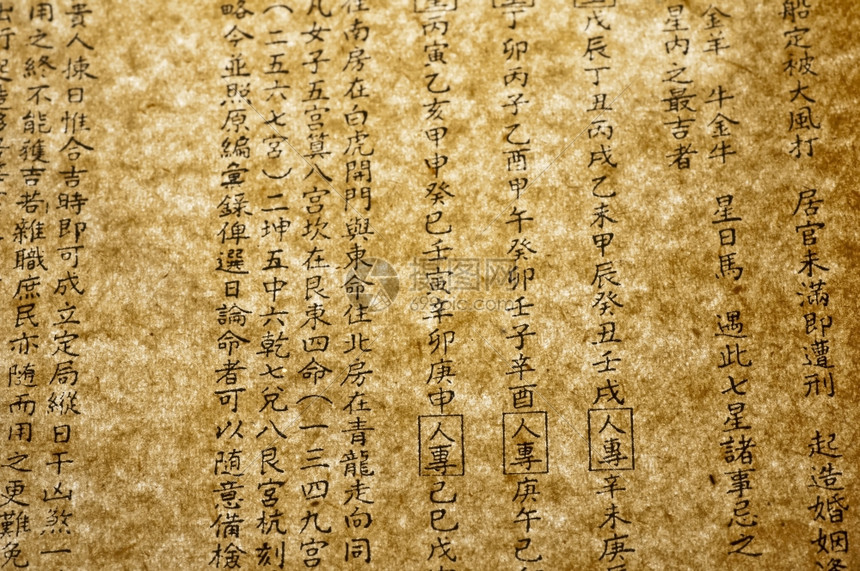 船定被大風打 居官未滿即遭刑 起造婚姻逢
金羊 牛金牛 星日馬 遇此七星諸事忌之
星內之最吉者
戊辰丁丑丙戌乙未甲辰癸丑壬戌人專辛未庚辰
丁卯丙子乙酉甲午癸卯壬子辛酉人專庚午己
丙寅乙亥甲申癸巳壬寅辛卯庚申人專己巳戊
在南房在白虎開門與東命住北房在青龍走向同
凡女子五宮算八宮坎在艮東四命(一三四九宮
(二五六七宮)二坤五中六乾七兌八艮宮杭刻
略今並照原編彙錄俾選日論命者可以隨意備檢
貴人揀日惟合吉時即可成立定局縱日干凶煞一
用之終不能獲吉若雜職庶民亦隨而用之更難免